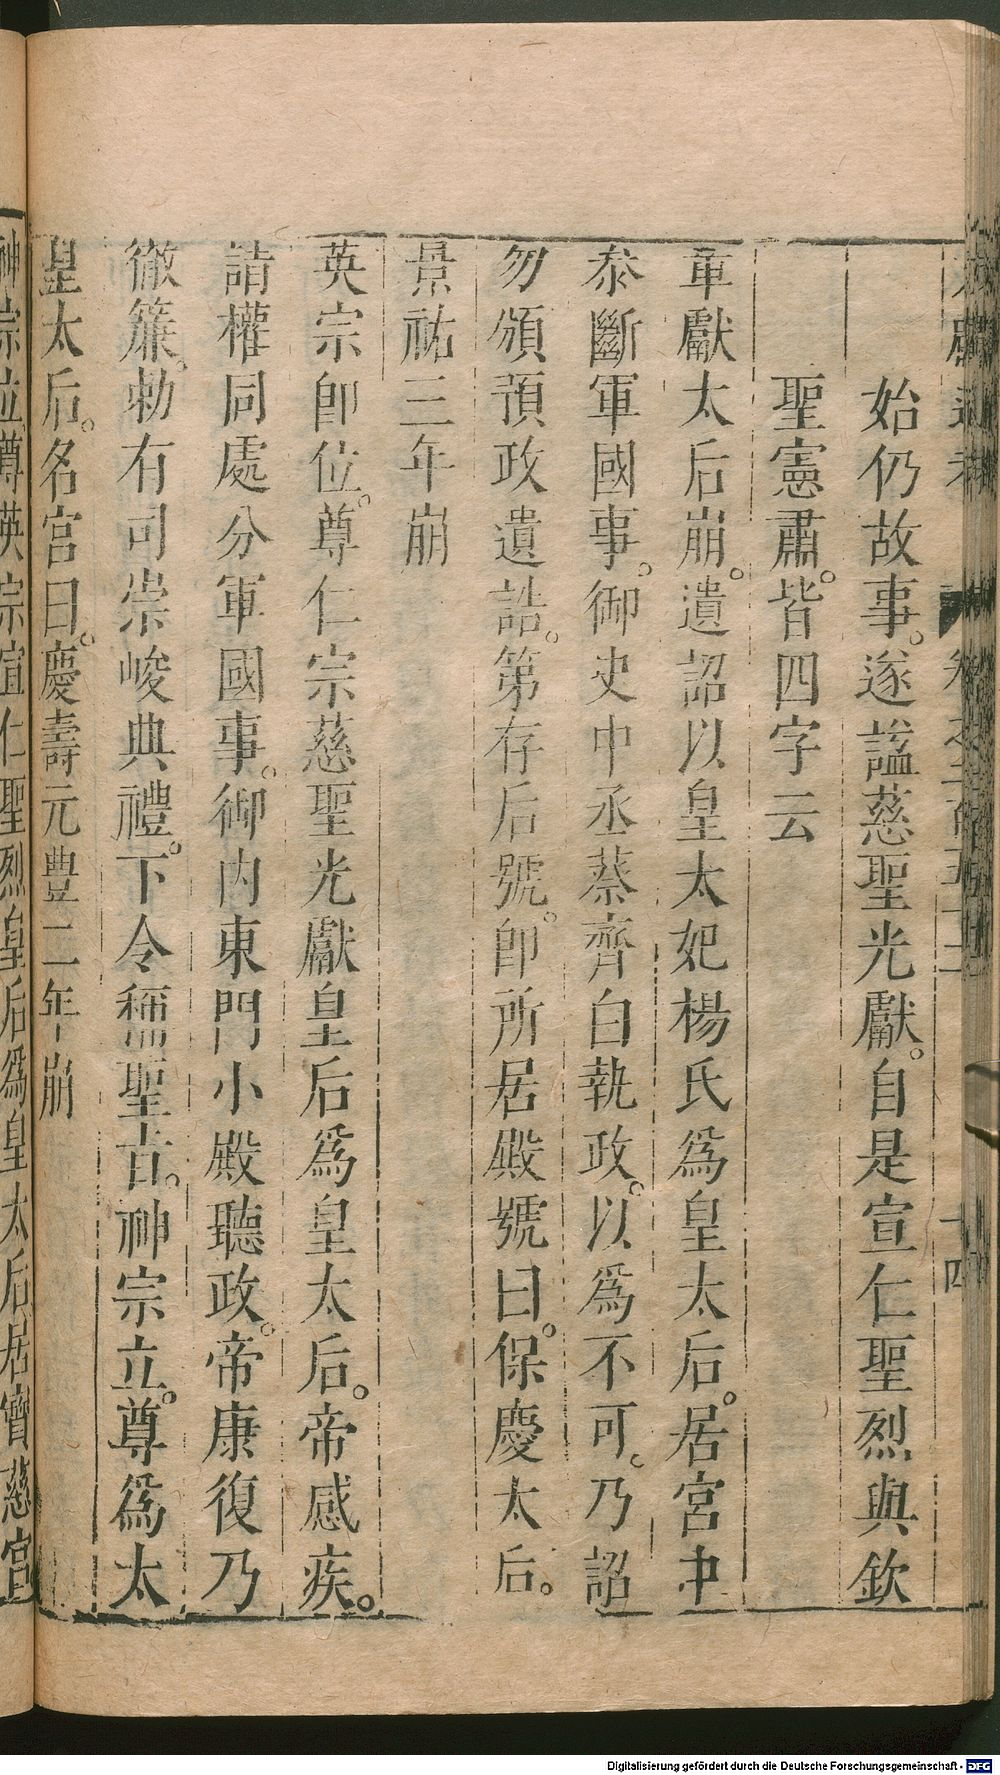 始仍故事。遂諡慈聖光獻。自是宣仁聖烈與欽
聖憲肅。皆四字云
章獻太后崩。遺詔以皇太妃楊氏為皇太后。居宮中
泰斷軍國事。御史中丞蔡齊白執政。以為不可。乃詔
勿頒預政遺誥。第存后號。即所居殿號曰。保慶太后。
景祐三年崩
英宗即位。尊仁宗慈聖光獻皇后為皇太后。帝感疾。
請權同處分軍國事。御內東門小殿聽政。帝康復乃
徹簾。勅有司崇峻典禮。下令稱聖旨。神宗立。尊為太
皇太后。名宮曰。慶壽元豊二年崩
神宗位尊英宗宣仁聖烈皇后為皇太后居寶慈宮
十四
Digitalisierung gefördert durch die Deutsche Forschungsgemeinschaft - DFG